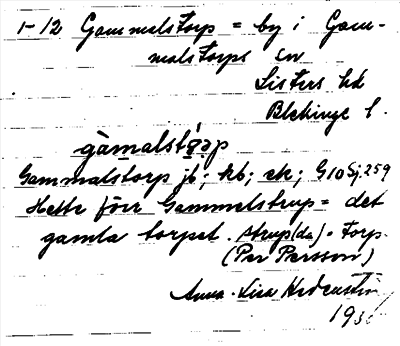 1-12 Gammalstorp = by i Gam-
malstorps sn
Listers hd
Blekinge l.
gàmalstǫ́rp
Gammalstorp jb; kb; ek; G10 Sj. 259
Hette förr Gammelstrup = det
gamla torpet. strup (da) = Torp.
(Per Persson)
Anna-Lisa